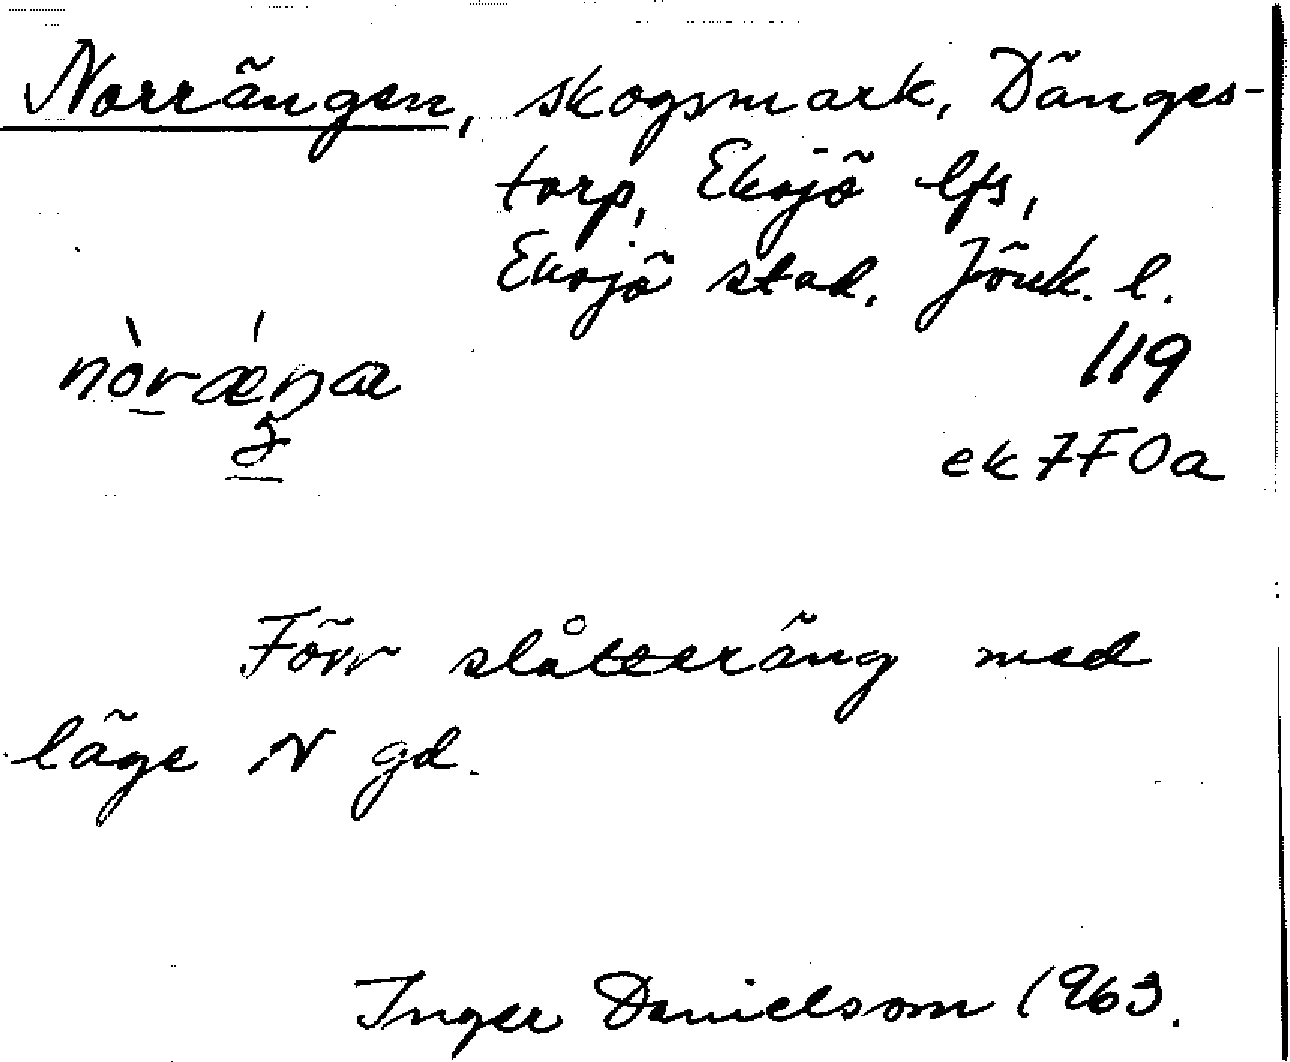 Norrängen, skogsmark, Dänges-
torp, Eksjö lfs,
Eksjö stad. Jönk. l.
nòrǽŋa
119
ek 7F0a
Förr slåtteräng med
läge N gd.
Inger Danielsom 1963.